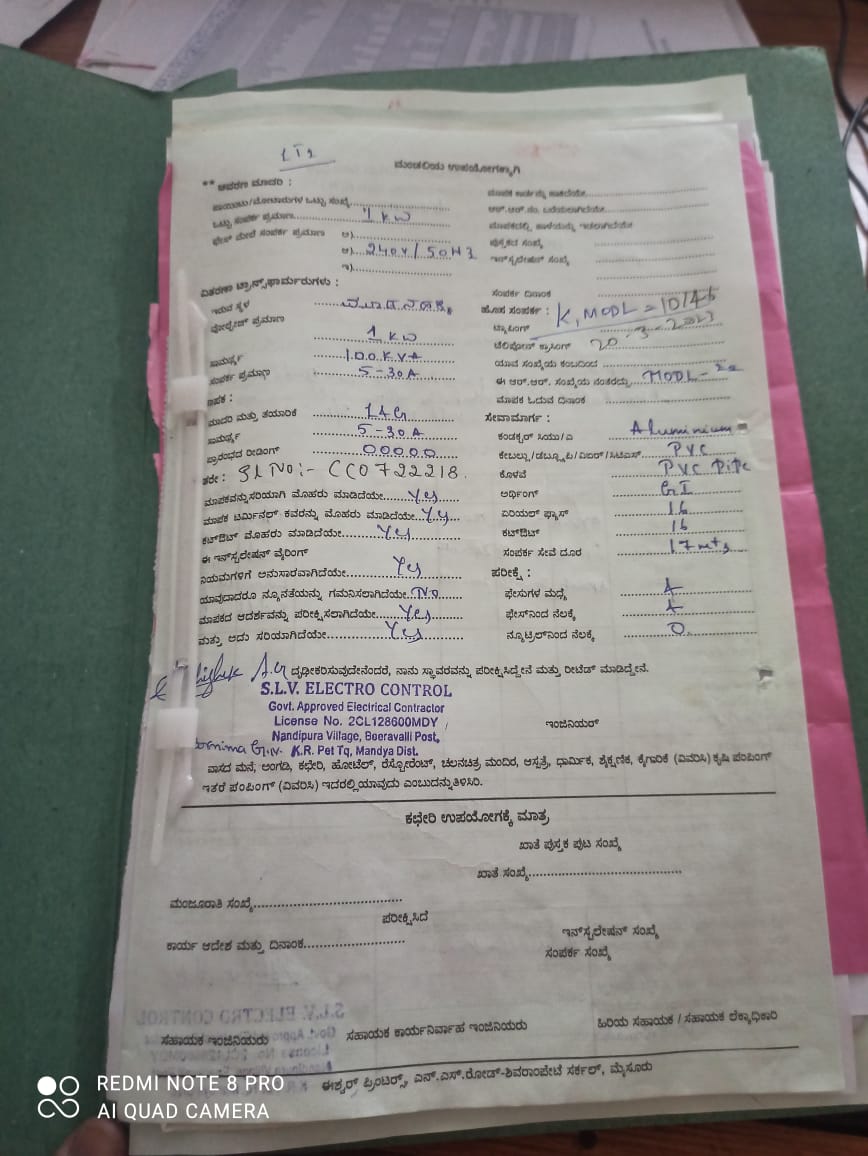 LT2
** ಆವರಣ ಮಾದರಿ :
ಒಟ್ಟು ಸಂಪರ್ಕ ಪ್ರಮಾಣ 1 KW
ಫೇಸ್ ಮೇಲೆ ಸಂಪರ್ಕ ಪ್ರಮಾಣ ಅ)
ಆ) 240V/50HZ
ಇ)
ವಿತರಣಾ ಟ್ರಾನ್ಸ್‌ಫಾರ್ಮರುಗಳು :
ಇರುವ ಸ್ಥಳ
ವೋಲ್ಟೇಜ್ ಪ್ರಮಾಣ 1 KW
ಸಾಮರ್ಥ್ಯ 100 KVA
ಸಂಪರ್ಕ ಪ್ರಮಾಣ 5-30A
ಮಾಪಕ :
ಮಾದರಿ ಮತ್ತು ತಯಾರಿಕೆ L&G
ಸಾಮರ್ಥ್ಯ 5-30A
ಪ್ರಾರಂಭದ ರೀಡಿಂಗ್ 00000
ತರೇ: Sl No:- CC0722218.
ಮಾಪಕವನ್ನು ಸರಿಯಾಗಿ ಮೊಹರು ಮಾಡಿದೆಯೇ Yes
ಮಾಪಕ ಟರ್ಮಿನಲ್ ಕವರನ್ನು ಮೊಹರು ಮಾಡಿದೆಯೇ Yes
ಕಟ್‌ಔಟ್ ಮೊಹರು ಮಾಡಿದೆಯೇ Yes
ಈ ಇನ್‌ಸ್ಟಲೇಷನ್ ವೈರಿಂಗ್
ನಿಯಮಗಳಿಗೆ ಅನುಸಾರವಾಗಿದೆಯೇ Yes
ಯಾವುದಾದರೂ ನ್ಯೂನತೆಯನ್ನು ಗಮನಿಸಲಾಗಿದೆಯೇ No
ಮಾಪಕದ ಆದರ್ಶವನ್ನು ಪರೀಕ್ಷಿಸಲಾಗಿದೆಯೇ Yes
ಮತ್ತು ಅದು ಸರಿಯಾಗಿದೆಯೇ Yes
ಪುಸ್ತಕದ ಸಂಖ್ಯೆ
ಸಂಪರ್ಕ ದಿನಾಂಕ
ಹೊಸ ಸಂಪರ್ಕ : K, MODL = 10146
ಟ್ಯಾಪಿಂಗ್ 20-3-2023
ಟೆಲಿಫೋನ್ ಕ್ರಾಸಿಂಗ್
ಯಾವ ಸಂಖ್ಯೆಯ ಕಂಬದಿಂದ
ಈ ಆರ್.ಆರ್. ಸಂಖ್ಯೆಯ ನಂತರದ್ದು MODL-
ಮಾಪಕ ಓದುವ ದಿನಾಂಕ
ಸೇವಾಮಾರ್ಗ :
ಕಂಡಕ್ಟರ್ ಸಿಯು/ಎ Aluminium
ಕೇಬಲ್ಲು/ಡಬ್ಲ್ಯೂಪಿ/ಎಐಆರ್/ಸಿಟಿಎಸ್ PVC
ಕೊಳವೆ PVC Pipe
ಅರ್ಥಿಂಗ್ GI
ಏರಿಯಲ್ ಫ್ಯೂಸ್ 16
ಕಟ್‌ಔಟ್ 16
ಸಂಪರ್ಕ ಸೇವೆ ದೂರ 17 mts
ಪರೀಕ್ಷೆ :
ಫೇಸುಗಳ ಮಧ್ಯೆ
ಫೇಸ್‌ನಿಂದ ನೆಲಕ್ಕೆ
ನ್ಯೂಟ್ರಲ್‌ನಿಂದ ನೆಲಕ್ಕೆ 0
ದೃಢೀಕರಿಸುವುದೇನೆಂದರೆ, ನಾನು ಸ್ಥಾವರವನ್ನು ಪರೀಕ್ಷಿಸಿದ್ದೇನೆ ಮತ್ತು ರೀಟೆಡ್ ಮಾಡಿದ್ದೇನೆ.
S.L.V. ELECTRO CONTROL
Govt. Approved Electrical Contractor
License No. 2CL128600MDY
Nandipura Village, Beeravalli Post,
K.R. Pet Tq, Mandya Dist.
ಇಂಜಿನಿಯರ್
ವಾಸದ ಮನೆ, ಅಂಗಡಿ, ಕಛೇರಿ, ಹೋಟೆಲ್, ರೆಸ್ಟೋರೆಂಟ್, ಚಲನಚಿತ್ರ ಮಂದಿರ, ಆಸ್ಪತ್ರೆ, ಧಾರ್ಮಿಕ, ಶೈಕ್ಷಣಿಕ, ಕೈಗಾರಿಕೆ (ವಿವರಿಸಿ) ಕೃಷಿ ಪಂಪಿಂಗ್
ಇತರೆ ಪಂಪಿಂಗ್ (ವಿವರಿಸಿ) ಇದರಲ್ಲಿ ಯಾವುದು ಎಂಬುದನ್ನು ತಿಳಿಸಿರಿ.
ಕಛೇರಿ ಉಪಯೋಗಕ್ಕೆ ಮಾತ್ರ
ಖಾತೆ ಪುಸ್ತಕ ಪುಟ ಸಂಖ್ಯೆ
ಖಾತೆ ಸಂಖ್ಯೆ
ಮಂಜೂರಾತಿ ಸಂಖ್ಯೆ
ಪರೀಕ್ಷಿಸಿದೆ
ಇನ್‌ಸ್ಟಲೇಷನ್ ಸಂಖ್ಯೆ
ಕಾರ್ಯ ಆದೇಶ ಮತ್ತು ದಿನಾಂಕ
ಸಂಪರ್ಕ ಸಂಖ್ಯೆ
ಸಹಾಯಕ ಇಂಜಿನಿಯರು ಸಹಾಯಕ ಕಾರ್ಯನಿರ್ವಾಹ ಇಂಜಿನಿಯರು ಹಿರಿಯ ಸಹಾಯಕ / ಸಹಾಯಕ ಲೆಕ್ಕಾಧಿಕಾರಿ
ಈಶ್ವರ್ ಪ್ರಿಂಟರ್ಸ್, ಎನ್.ಎಸ್.ರೋಡ್-ಶಿವರಾಂಪೇಟೆ ಸರ್ಕಲ್, ಮೈಸೂರು
REDMI NOTE 8 PRO
AI QUAD CAMERA